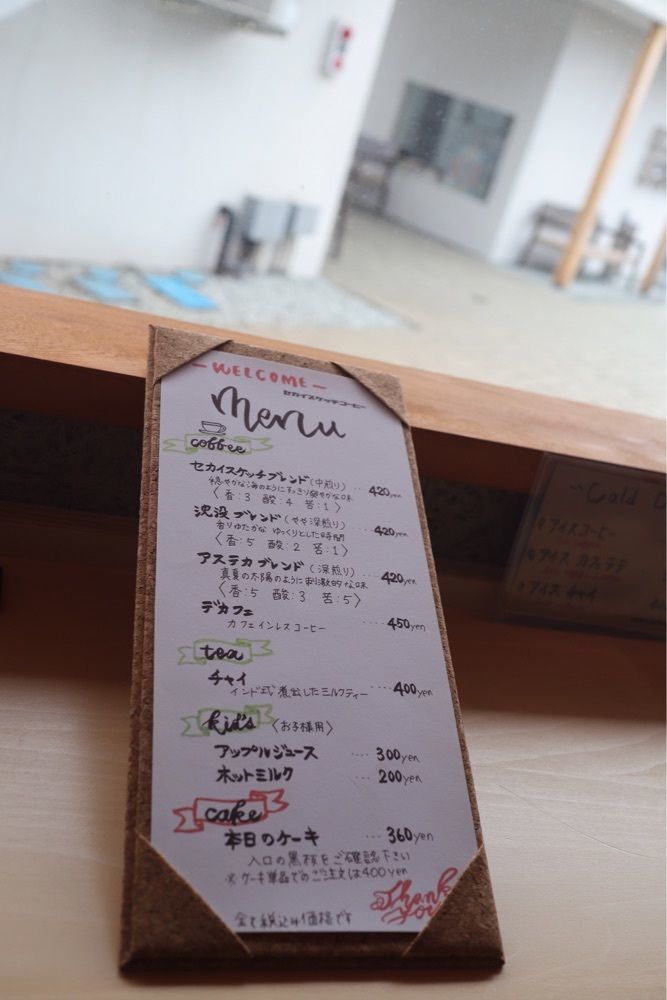 - WELCOME -
セカイスケッチコーヒー
menu
coffee
セカイスケッチブレンド(中煎り) ... 420yen
穏やかな海のようにすっきり爽やかな味
〈香:3 酸:4 苦:1〉
沈没ブレンド(やや深煎り) ... 420yen
香りゆたかな ゆっくりとした時間
〈香:5 酸:2 苦:1〉
アステカブレンド(深煎り) ... 420yen
真夏の太陽のように刺激的な味
〈香:5 酸:3 苦:5〉
デカフェ
カフェインレスコーヒー ... 450yen
tea
チャイ
インド式煮出したミルクティー .... 400yen
kid's 〈お子様用〉
アップルジュース .... 300yen
ホットミルク ... 200yen
cake
本日のケーキ ... 360yen
入口の黒板をご確認下さい
※ケーキ単品でのご注文は400yen
Thank you
全て税込み価格です
Cold
アイスコーヒー
アイス カフェラテ
アイス チャイ